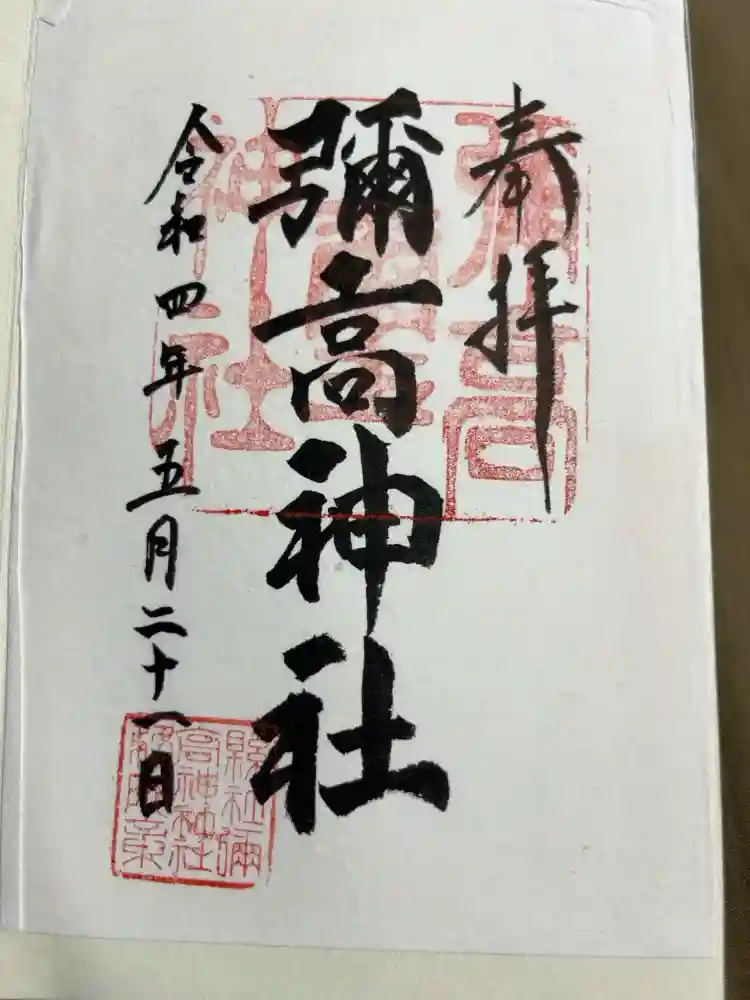 奉拝
彌高神社
令和四年五月二十一日
彌高神社
縣社彌高神社